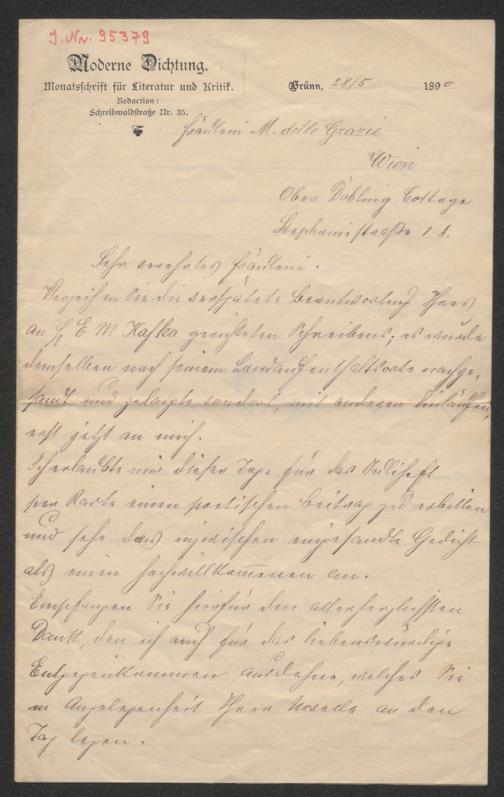 J. Nr. 95379
Moderne Dichtung.
Monatsschrift für Literatur und Kritik.
Redaction:
Schreibwaldstraße Nr. 35.
Brünn, 28/5 1890
Fräulein M. delle Grazie
Wien
Ober Döbling Cottage
Stephaniestraße 1 A.
Sehr verehrtes Fräulein.
Verzeihen Sie die verspätete Beantwortung Ihres
an H E M Kafka gerichteten Schreibens; es wurde
demselben nach seinem Landaufenthaltsorte nachge-
sandt und gelangte von dort, mit anderen Einläufen,
erst jetzt an mich.
Ich erlaubte mir dieser Tage für das Juliheft
per Karte einen poetischen Beitrag zu erbitten
und sehe das inzwischen eingesandte Gedicht
als einen hochwillkommenen an.
Empfangen Sie hierfür den allerherzlichsten
Dank, den ich auch für das liebenswürdige
Entgegenkommen ausdehne, welches Sie
in Angelegenheit Ihrer Novelle an den
Tag legen.